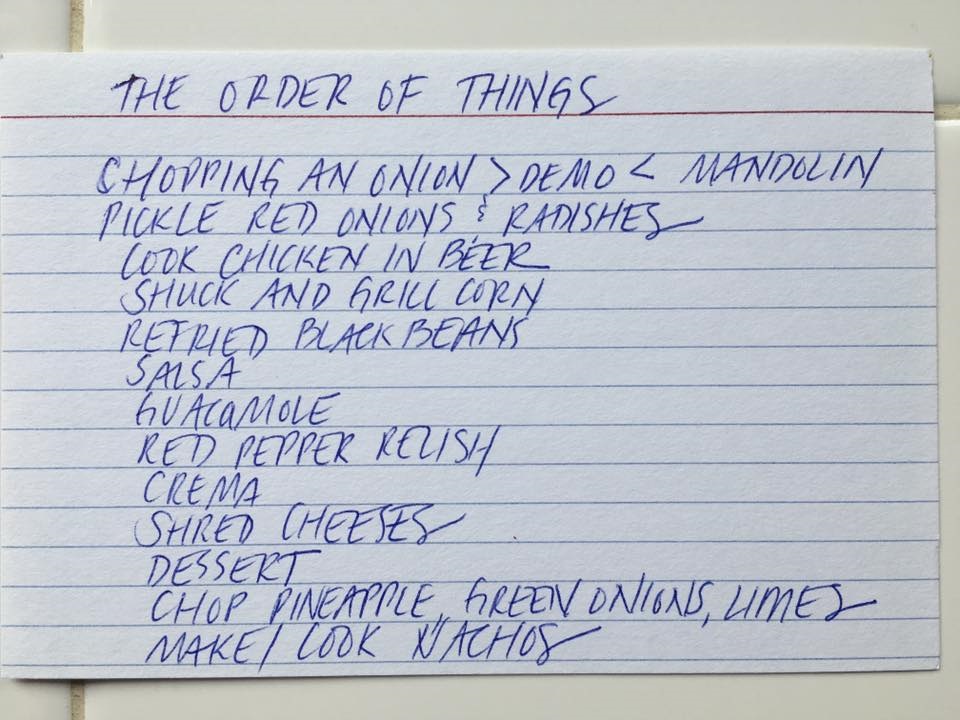 THE ORDER OF THINGS
CHOPPING AN ONION > DEMO < MANDOLIN
PICKLE RED ONIONS & RADISHES
COOK CHICKEN IN BEER
SHUCK AND GRILL CORN
REFRIED BLACK BEANS
SALSA
GUACAMOLE
RED PEPPER RELISH
CREMA
SHRED CHEESES
DESSERT
CHOP PINEAPPLE, GREEN ONIONS, LIMES
MAKE/COOK NACHOS